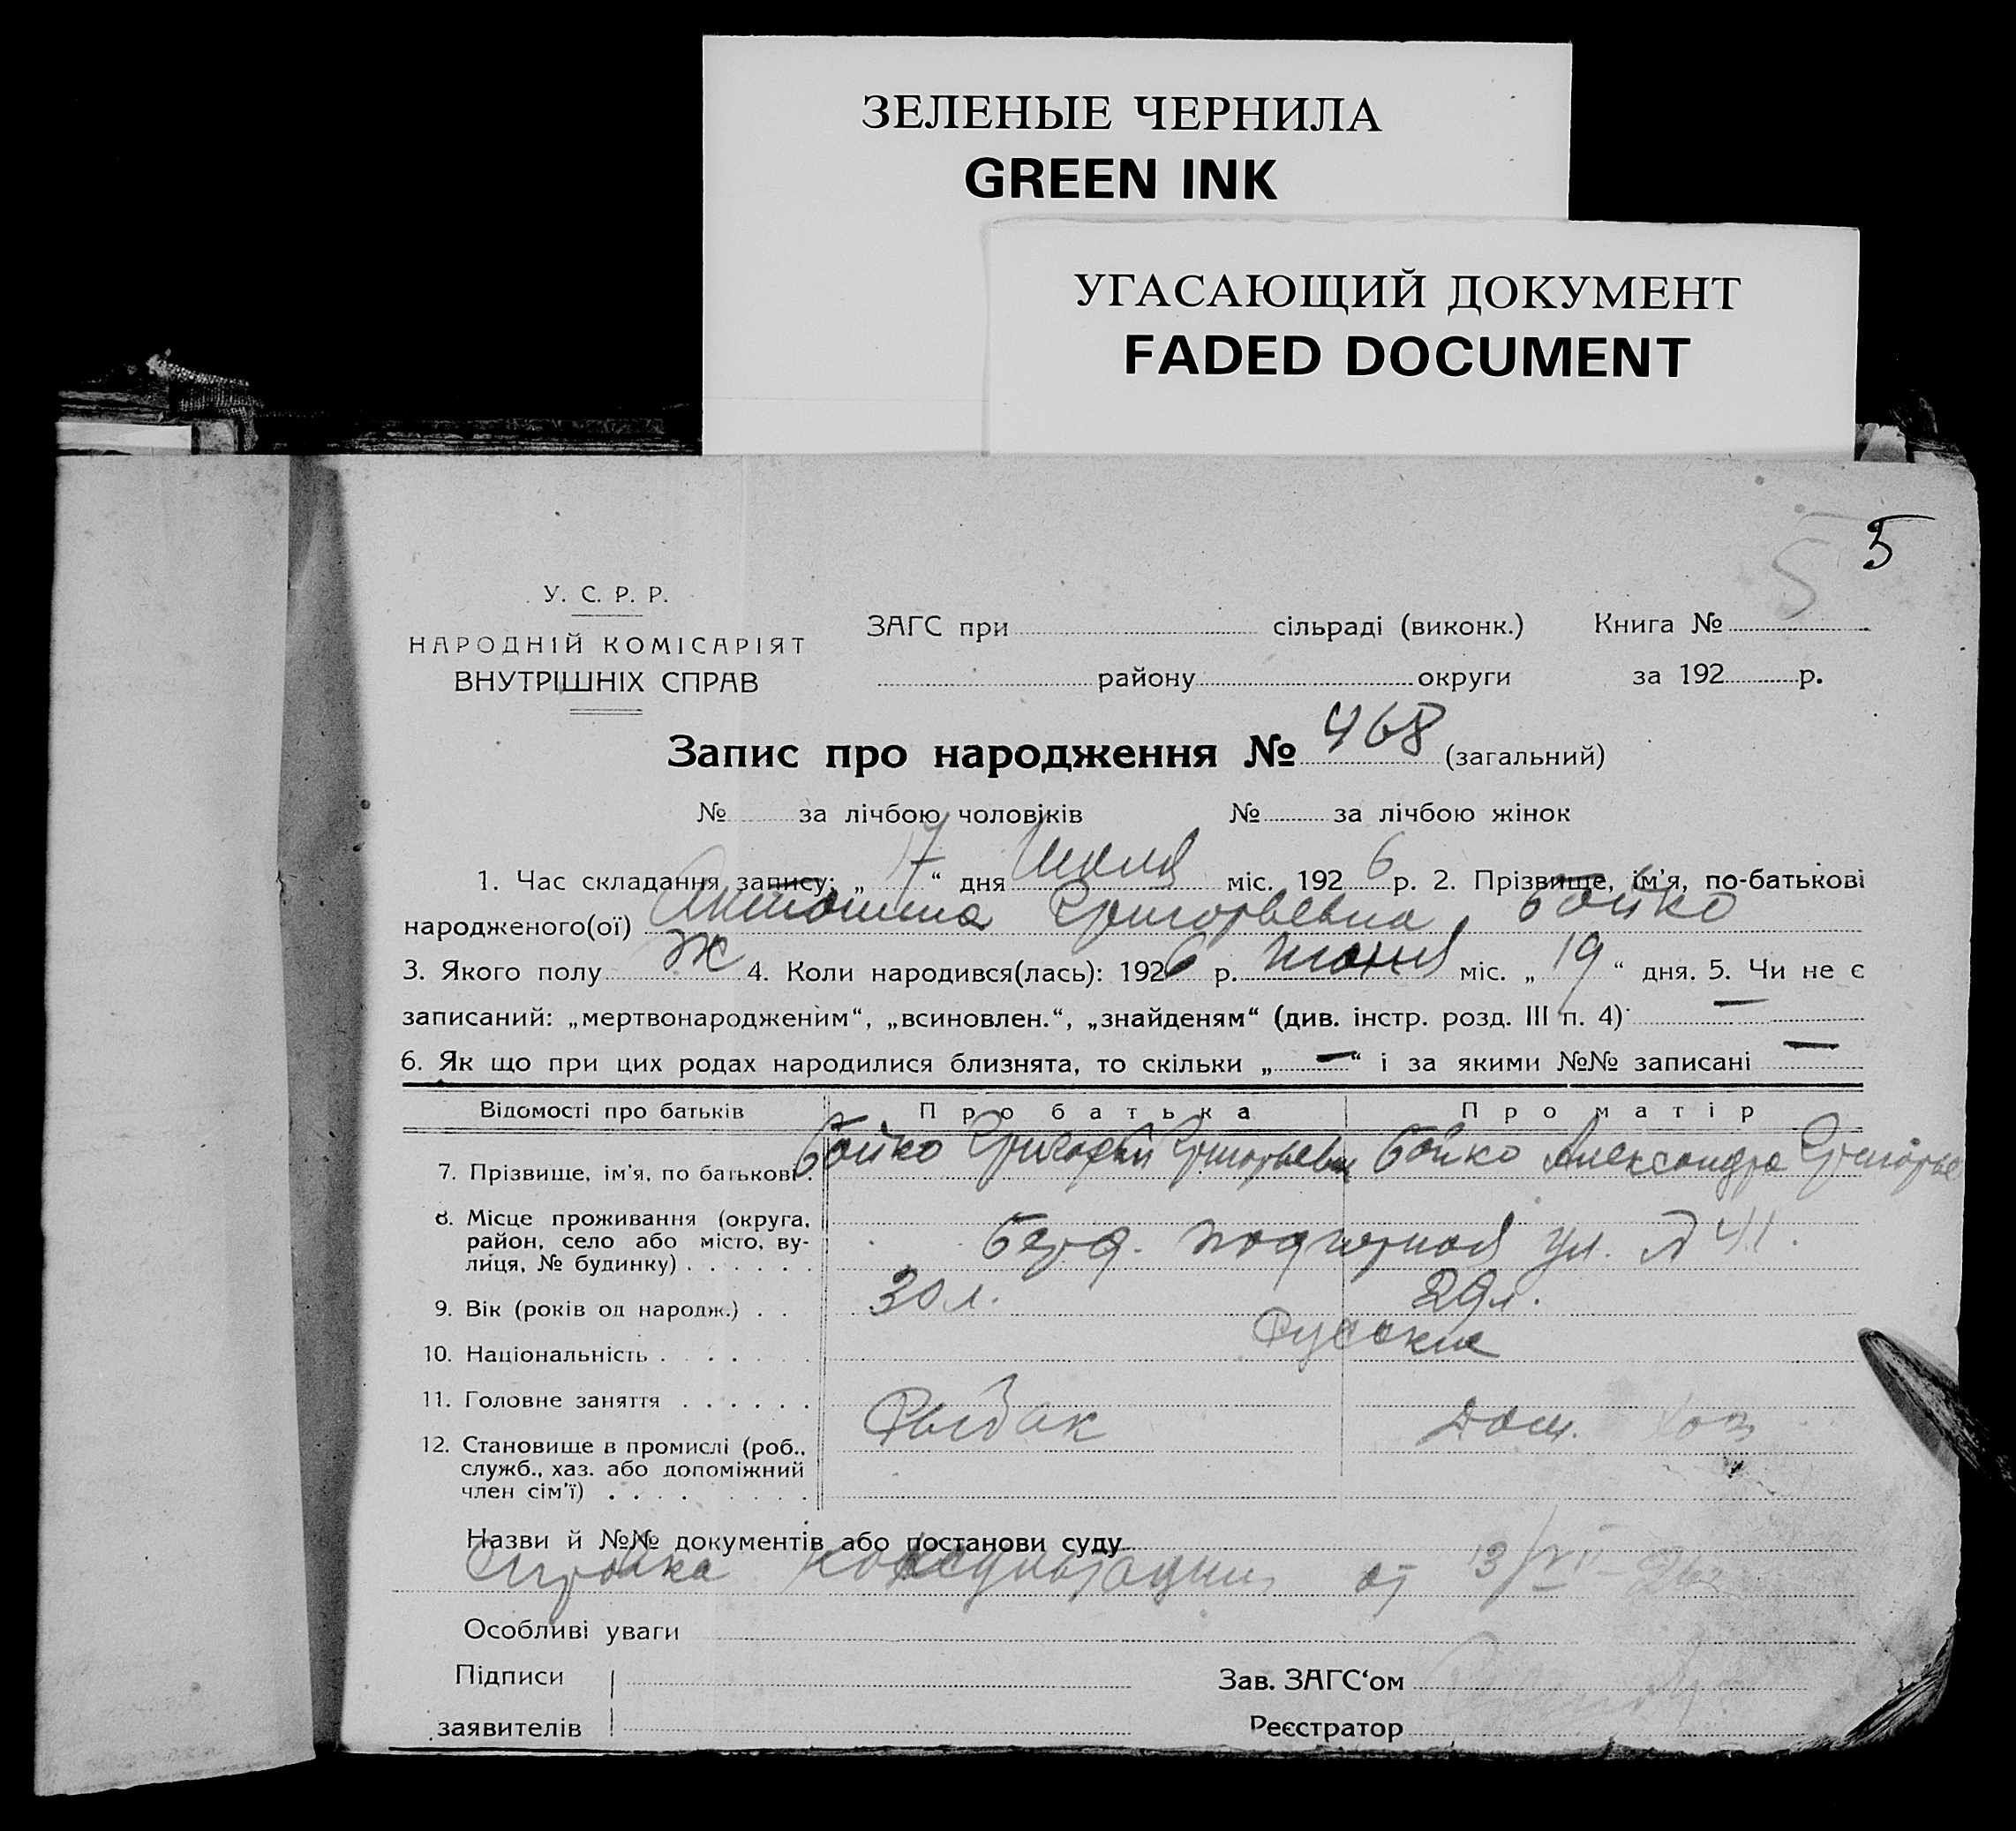 ЗЕЛЕНЫЕ ЧЕРНИЛА
GREEN INK
УГАСАЮЩИЙ ДОКУМЕНТ
FADED DOCUMENT
5 5
У. С. Р. Р.
НАРОДНІЙ КОМІСАРІЯТ
ВНУТРІШНІХ СПРАВ
ЗАГС при сільраді (виконк.) Книга №
району округи за 192 р.
Запис про народження № 468 (загальний)
№ за лічбою чоловіків № за лічбою жінок
1. Час складання запису: „ 17 “ дня Июля міс. 192 6 р. 2. Прізвище, ім'я, по-батькові
народженого(ої) Антонина Григорьевна Бойко
3. Якого полу Ж 4. Коли народився(лась): 1926 р. июня міс. „ 19 “ дня. 5. Чи не є
записаний: „мертвонародженим“, „всиновлен.“, „знайденям“ (див. інстр. розд. III п. 4) —
6. Як що при цих родах народилися близнята, то скільки „ — “ і за якими №№ записані —
Відомості про батьків Про батька Про матір
7. Прізвище, ім'я, по батькові . Бойко Григорий Григорьевич Бойко Александра Григорье
8. Місце проживання (округа,
район, село або місто, ву-
лиця, № будинку) . . . . . . Берд. подгорная ул. д 41.
9. Вік (років од народж.) . . 30 л. 29 л.
10. Національність . . . . . . Русские
11. Головне заняття . . . . . . Рыбак Дом. хоз
12. Становище в промислі (роб.,
служб., хаз. або допоміжний
член сім'ї) . . . . . . . . .
Назви й №№ документів або постанови суду
Справка консультации от 13/VII 26
Особливі уваги
Підписи Зав. ЗАГС'ом
заявителів Реєстратор